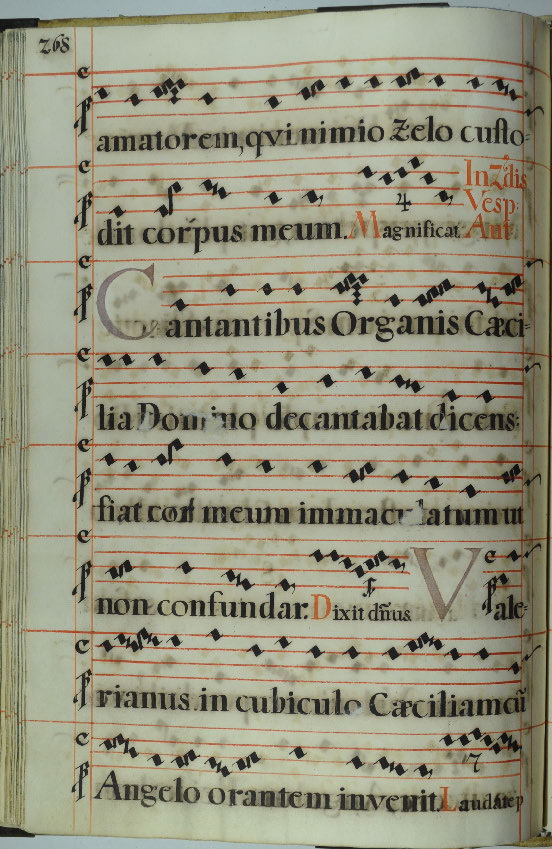 268
amatorem, qui nimio Zelo custo=
dit corpus meum. Magnificat In 2.dis
Vesp.
Ant
Cantantibus Organis Cæci=
lia Domino decantabat dicens:
fiat cor meum immaculatum ut
non confundar. Dixit dñus Vale=
rianus in cubiculo Cæciliam cũ
Angelo orantem invenit. Laudate p